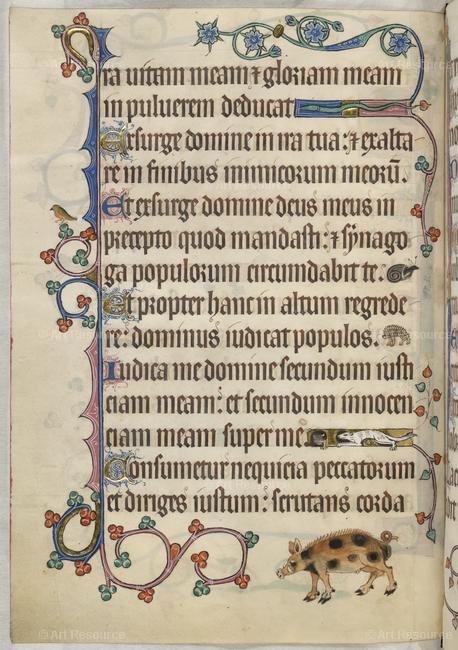 ra uitam meam ⁊ gloriam meam
in puluerem deducat
Exsurge domine in ira tua: ⁊ exalta
re in finibus inimicorum meoꝝ̄.
Et exsurge domine deus meus in
precepto quod mandasti: ⁊ synago
ga populorum circumdabit te.
Et propter hanc in altum regrede
re: dominus iudicat populos.
Iudica me domine secundum iusti
ciam meam: et secundum innocen
ciam meam super me.
Consumetur nequicia peccatorum
et diriges iustum: scrutans corda
© Art Resource
© Art Resource